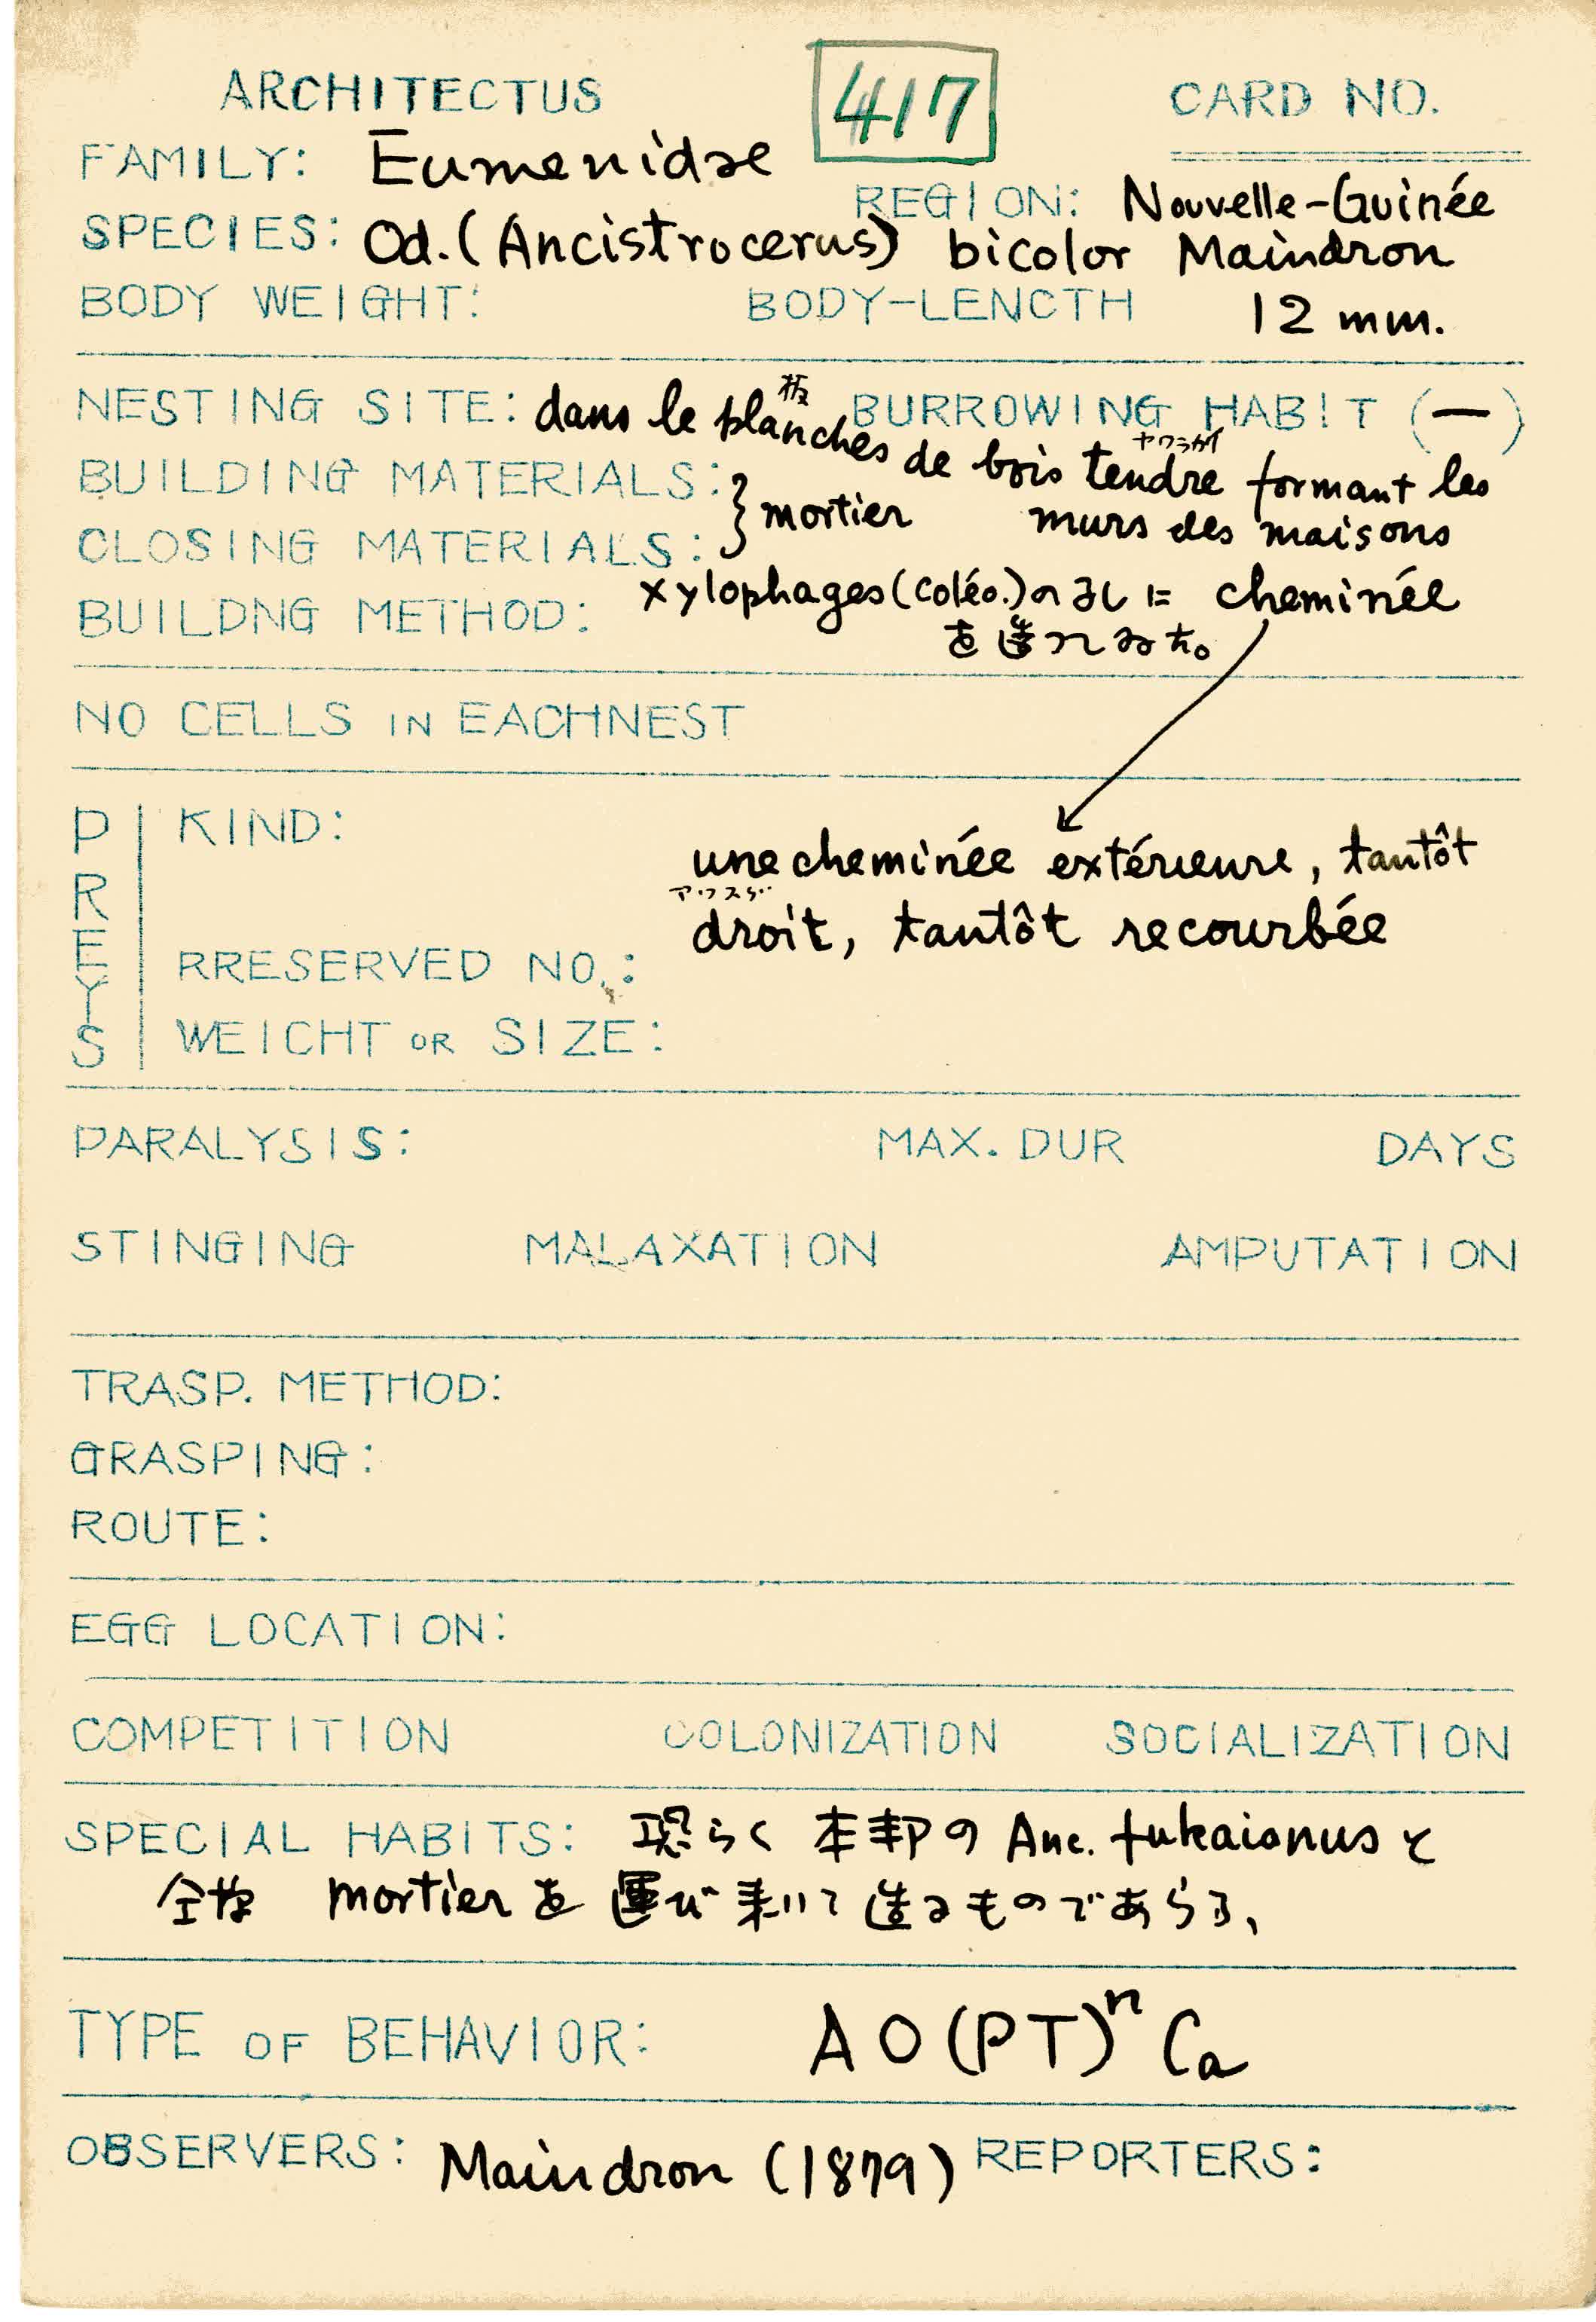 ARCHITECTUS 417 CARD NO.
FAMILY: Eumenidae
REGION: Nouvelle-Guinée
SPECIES: Od. (Ancistrocerus) bicolor Maindron
BODY WEIGHT: BODY-LENCTH 12 mm.
板
NESTING SITE: dans le planches BURROWING HABIT (—)
ヤワラカイ
de bois tendre formant les
BUILDING MATERIALS: } mortier murs des maisons
CLOSING MATERIALS:
BUILDNG METHOD: xylophages (coléo.) の孔に cheminée
を造つゐた。
NO CELLS IN EACHNEST
PREYS
KIND:
une cheminée extérieure, tantôt
droit, tantôt recourbée
RRESERVED NO.:
WEICHT OR SIZE:
PARALYSIS: MAX. DUR DAYS
STINGING MALAXATION AMPUTATION
TRASP. METHOD:
GRASPING:
ROUTE:
EGG LOCATION:
COMPETITION COLONIZATION SOCIALIZATION
SPECIAL HABITS: 恐らく 本邦の Anc. fukaianus と
仝様 mortier を 運び来りて造るものであらう、
TYPE OF BEHAVIOR: A O (PT)ⁿ Ca
OBSERVERS: Maindron (1879) REPORTERS: